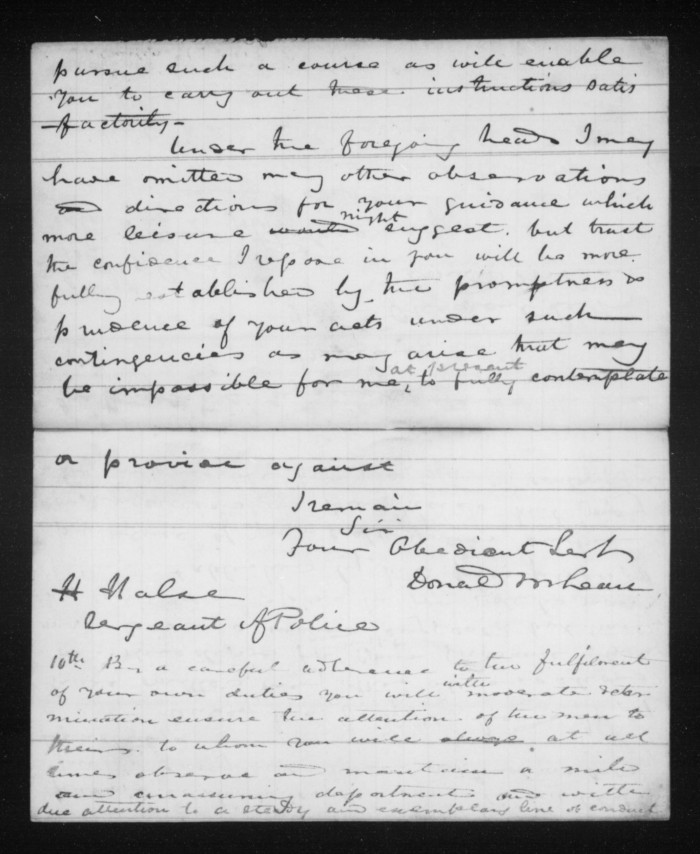 pursue such a course as will enable
you to carry out these instructions satis
factorily -
Under the foregoing heads I may
have omitted many other observations
and directions for your guidance which
more leisure would might suggest. but trust
the confidence I repose in you will be more
fully established by the promptness &
prudence of your acts under such
contingencies as may arise that may
be impossible for me, at present to fully contemplate
or provide against
I remain
Sir
Your Obedient Servt
Donald McLean
H Halse
Sergeant of Police
10th By a careful adherence to the fulfilment
of your own duties you will with moderate deter
mination ensure the attention of the men to
theirs. to whom you will always at all
times observe and maintain a mild
and unassuming deportment and with
due attention to a steady and exemplary line of conduct